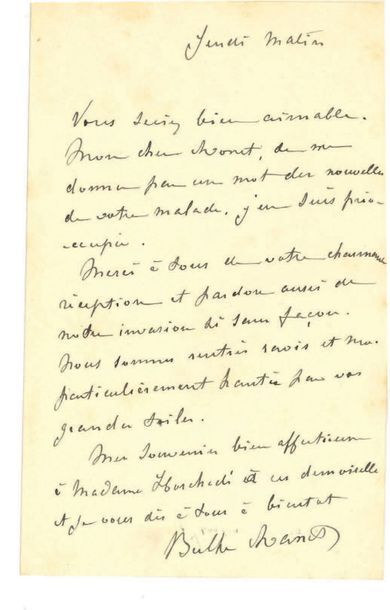 Jeudi Matin
Vous seriez bien aimable.
Mon cher Monet, de me
donner par un mot des nouvelles
de votre malade, j'en suis préo-
-ccupée.
Merci à tous de votre charmante
réception et pardon aussi de
notre invasion si sans façon.
Nous sommes rentrés ravis et moi
particulièrement hantée par vos
grandes toiles.
Mes souvenirs bien affectueux
à Madame Hoschedé et ces demoiselles
et je vous dis à tous à bientôt
Berthe Manet